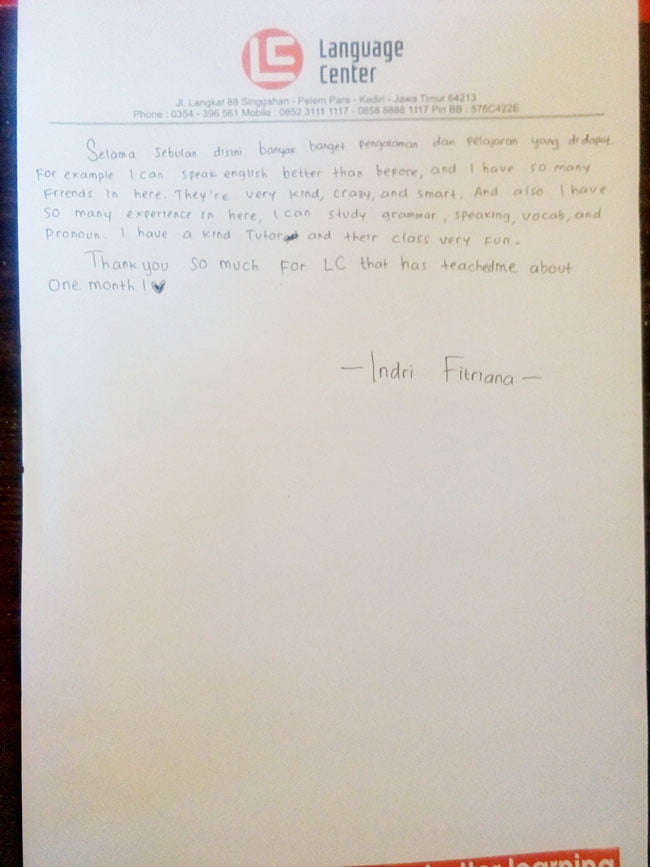 LC Language
Center
Jl. Langkat 88 Singgahan - Pelem Pare - Kediri - Jawa Timur 64213
Phone : 0354 - 396 561 Mobile : 0852 3111 1117 - 0858 8888 1117 Pin BB : 576C422E
Selama Sebulan disini banyak banget pengalaman dan pelajaran yang didapat.
For example I can speak english better than bepore, and I have so many
Friends in here. They're very kind, crazy, and smart. And also I have
so many experience in here, I can study grammar, speaking, vocab, and
pronoun. I have a kind Tutor and their class very fun.
Thank you so much For LC that has teachedme about
One month !
- Indri Fitriana -
better learning